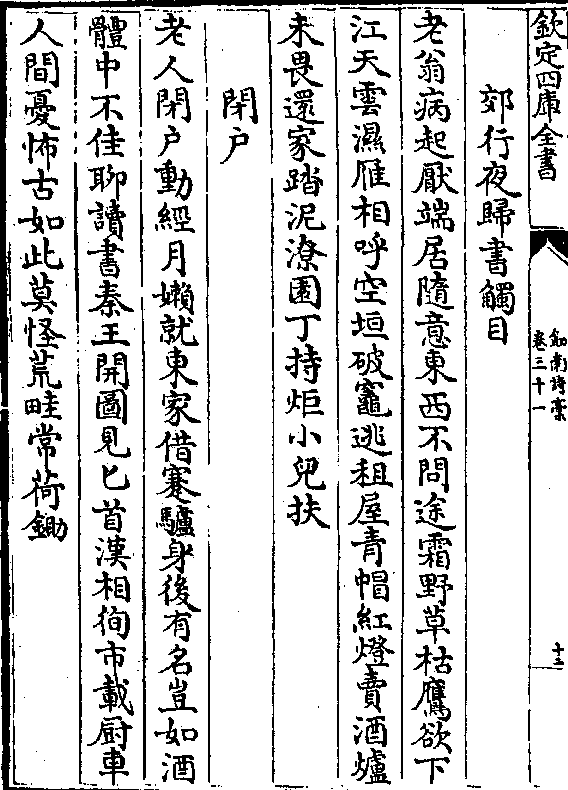 欽定四庫全書
劍南詩槀
卷三十一
十三
郊行夜歸書觸目
老翁病起厭端居隨意東西不問途霜野草枯鷹欲下
江天雲濕雁相呼空垣破竈逃租屋青帽紅燈賣酒爐
未畏還家踏泥潦園丁持炬小兒扶
閉户
老人閉户動經月嬾就東家借蹇驢身後有名豈如酒
體中不佳聊讀書秦王開圖見匕首漢相徇市載厨車
人間憂怖古如此莫怪荒畦常荷鋤